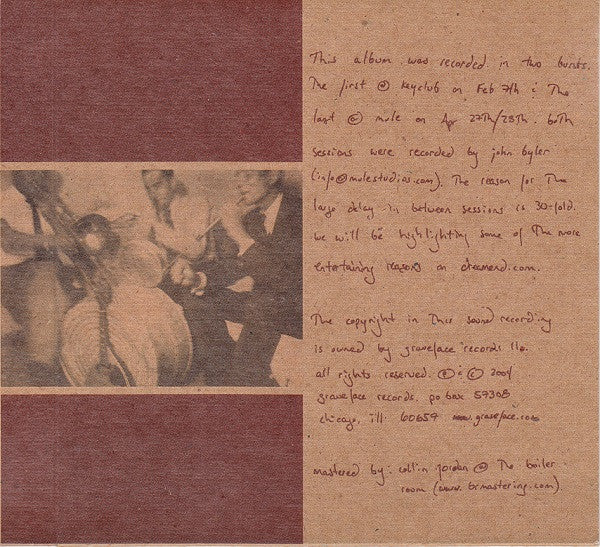 This album was recorded in two bursts.
The first @ keyclub on Feb 7th & The
last @ mule on Apr 27th/28th. both
sessions were recorded by john byler
(info@mulestudios.com). The reason for The
large delay in between sessions is 30-fold.
we will be highlighting some of The more
entertaining reasons on dreamend.com.
The copyright in This sound recording
is owned by graveface records llc.
all rights reserved. Ⓟ & © 2004
graveface records. po box 59308
chicago, ill. 60659 www.graveface.com
mastered by: collin jordan @ The boiler
room (www.brmastering.com)